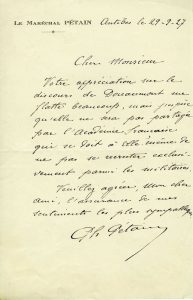 LE MARÉCHAL PÉTAIN
Antibes le 29-9-27
Cher Monsieur
Votre appréciation sur le
discours de Douaumont me
flatte beaucoup, mais j'espère
qu'elle ne sera pas partagée
par l'Académie française
qui se doit à elle même de
ne pas se recruter exclusi-
vement parmi les militaires
Veuillez agréer, mon cher
ami, l'assurance de mes
sentiments les plus sympathiques
Ph Pétain